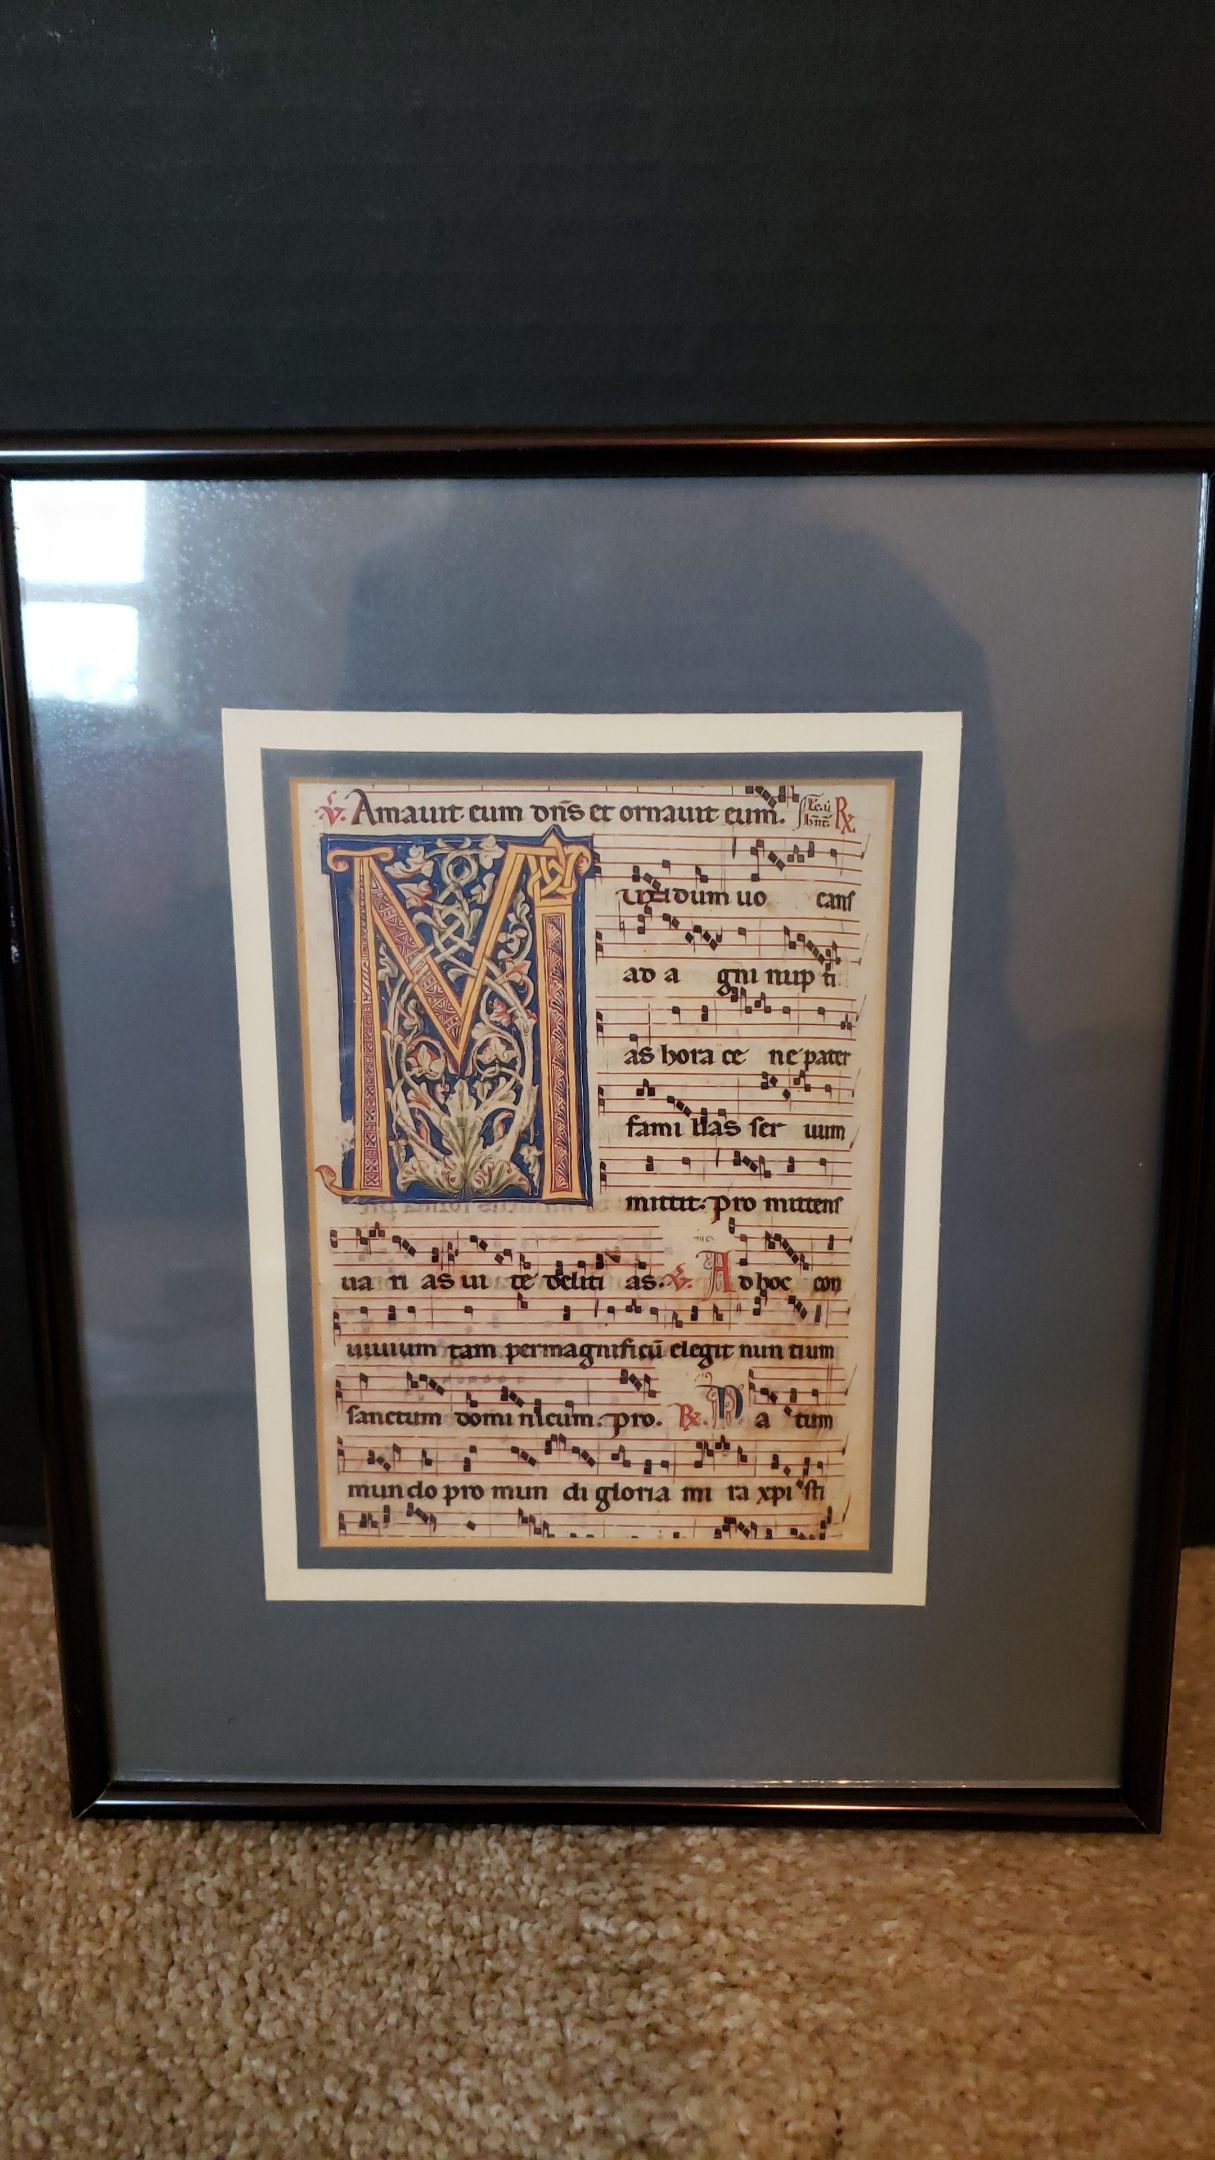 V. Amauit eum dn̄s et ornauit eum. R
M undum uo cans
ad a gni nup ti
as hora ce ne pater
fami lias ser uum
mittit. pro mittens
ua ri as ui te deliti as. V. Ad hoc con
uiuium tam permagnificū elegit nun tium
sanctum domi nicum. pro. R. D a tum
mun do pro mun di gloria mi ra xpi sti